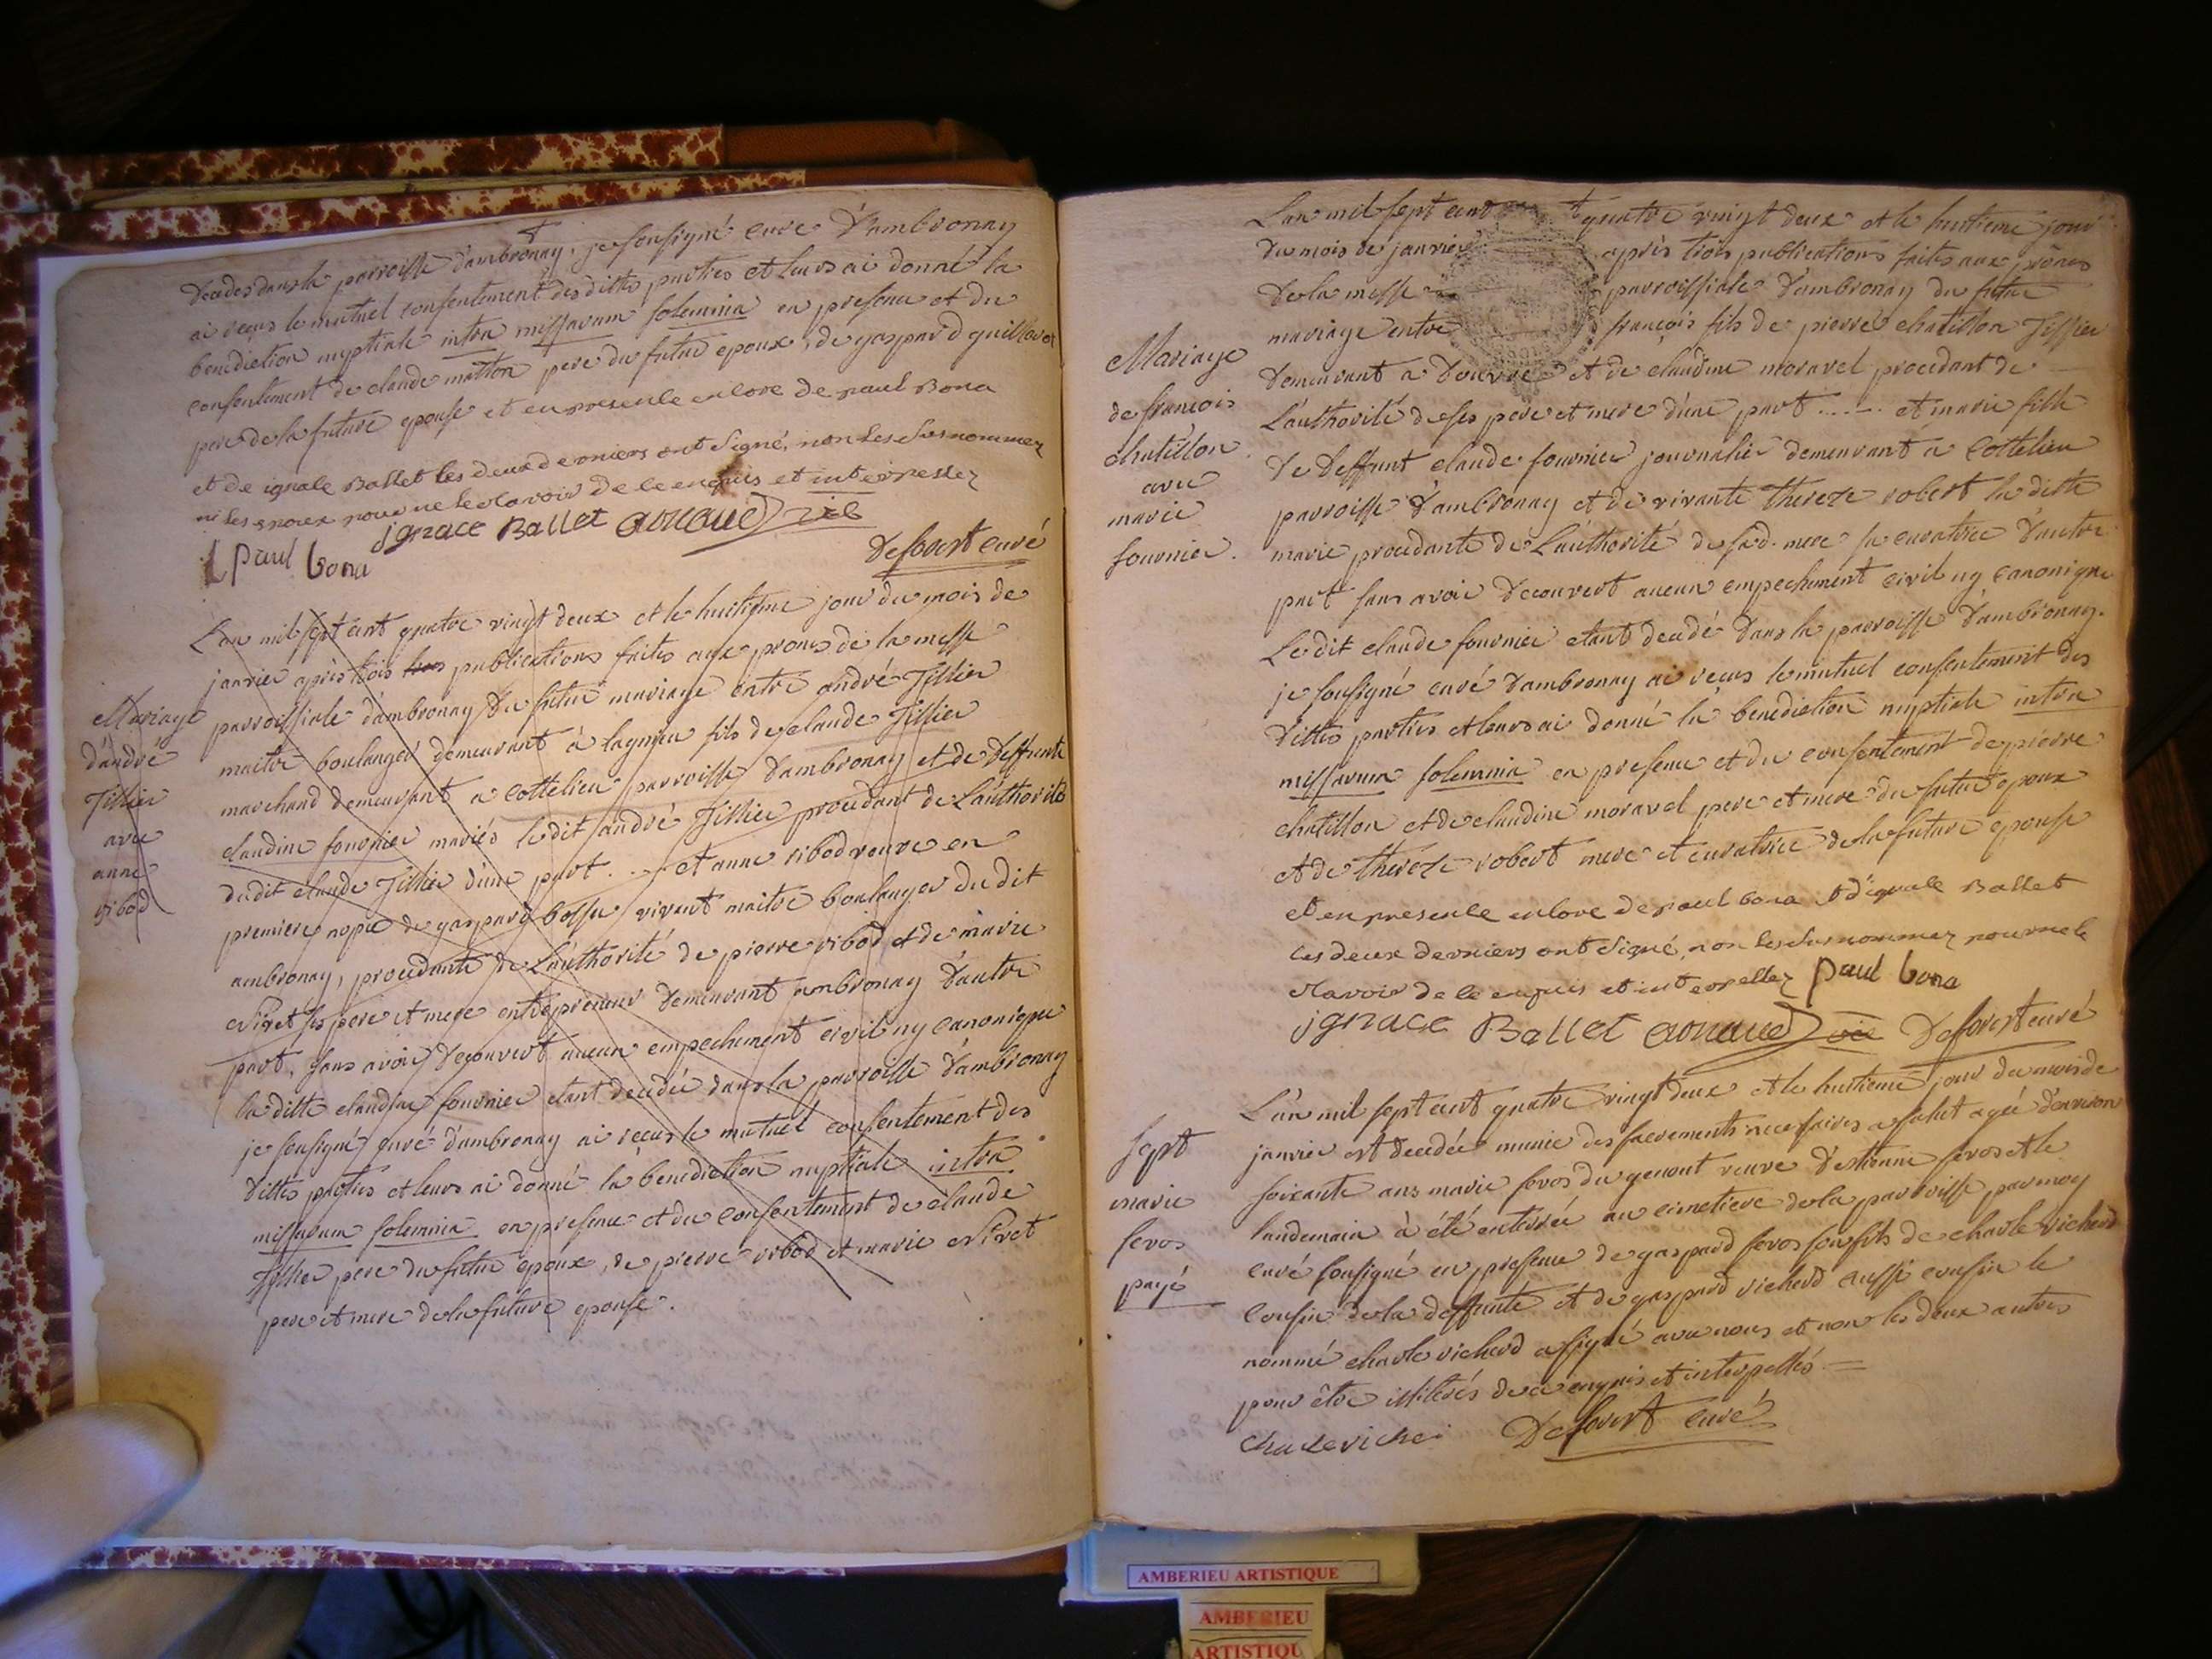 decedes dans la parroisse d'ambronay, je sousigné curé d'ambronay
ai reçus le mutuel consentement des dittes parties et leurs ai donné la
benediction nuptiale intra missarum solemnia en presence et du
consentement de claude matton pere du futur epoux, de gaspard
pere de la future epouse et en presence encore de paul Bona
et de ignale Ballet les deux derniers ont signé, non les susnommez
ni les epoux pour ne le sçavoir de ce enquis et interpellez
paul bona ignace Ballet
Deforest curé
L'an mil sept cent quatre vingt deux et le huitieme jour du mois de
janvier après trois publications faites aux prones de la messe
parroissiale d'ambronay du futur mariage entre andré Tissier
maitre boulanger demeurant à lagnieu fils de claude Tissier
marchand demeurant a cottelieu parroisse d'ambronay et de deffunte
claudine fournier mariés ledit andré Tissier procedant de l'authorité
dudit claude Tissier d'une part . . . et anne ribod veuve en
premiere nopce de gaspard bossu vivant maitre boulanger du dit
ambronay, procedante de l'authorité de pierre ribod et de marie
ses pere et mere entrepreneur demeurant ambronay d'autre
part, sans avoir decouvert aucun empechement civil ny canonique
la ditte claudine fournier etant decedée dans la parroisse d'ambronay
je sousigné curé d'ambronay ai reçus le mutuel consentement des
dittes parties et leurs ai donné la benediction nuptiale intra
missarum solemnia en presence et du consentement de claude
Tissier pere du futur epoux, de pierre ribod et marie
pere et mere de la future epouse.
Mariage
d'andré
Tissier
avec
anne
ribod
L'an mil sept cent quatre vingt deux et le huitieme jour
du mois de janvier après trois publications faites aux prônes
de la messe parroissiale d'ambronay du futur
mariage entre françois fils de pierre chatillon Tissier
demeurant a douvre et de claudine moravel procedant de
l'authorité de ses pere et mere d'une part . . . . et marie fille
de deffunt claude fournier journalier demeurant a cottelieu
parroisse d'ambronay et de vivante thereze robert la ditte
marie procedante de l'authorité de sad. mere sa curatrice d'autre
part sans avoir decouvert aucun empechement civil ny canonique
Ledit claude fournier etant decedé dans la parroisse d'ambronay.
je sousigné curé d'ambronay ai reçus le mutuel consentement des
dittes parties et leurs ai donné la benediction nuptiale intra
missarum solemnia en presence et du consentement de pierre
chatillon et de claudine moravel pere et mere du futur epoux
et de thereze robert mere et curatrice de la future epouse
et en presence encore de paul bona et d'ignale Ballet
les deux derniers ont signé, non les susnommez pour ne le
sçavoir de ce enquis et interpellez paul bona
ignace Ballet Deforest curé
Mariage
de françois
chatillon
avec
marie
fournier.
L'an mil sept cent quatre vingt deux et le huitieme jour du mois de
janvier est decedée munie des sacrements necessaires a salut agée d'environ
soixante ans marie fevos du genout veuve d'estienne fevos et le
landemain à été enterrée au cimetiere de la parroisse par moy
curé sousigné en presence de gaspard fevos son fils de charle richerd
cousin de la deffunte et de gaspard richerd aussi cousin le
nommé charle richerd a signé avec nous et non les deux autres
pour être illiterés de ce enquis et interpellés
Deforest curé
Sept
marie
fevos
payé
AMBERIEU ARTISTIQUE
AMBERIEU
ARTISTIQU